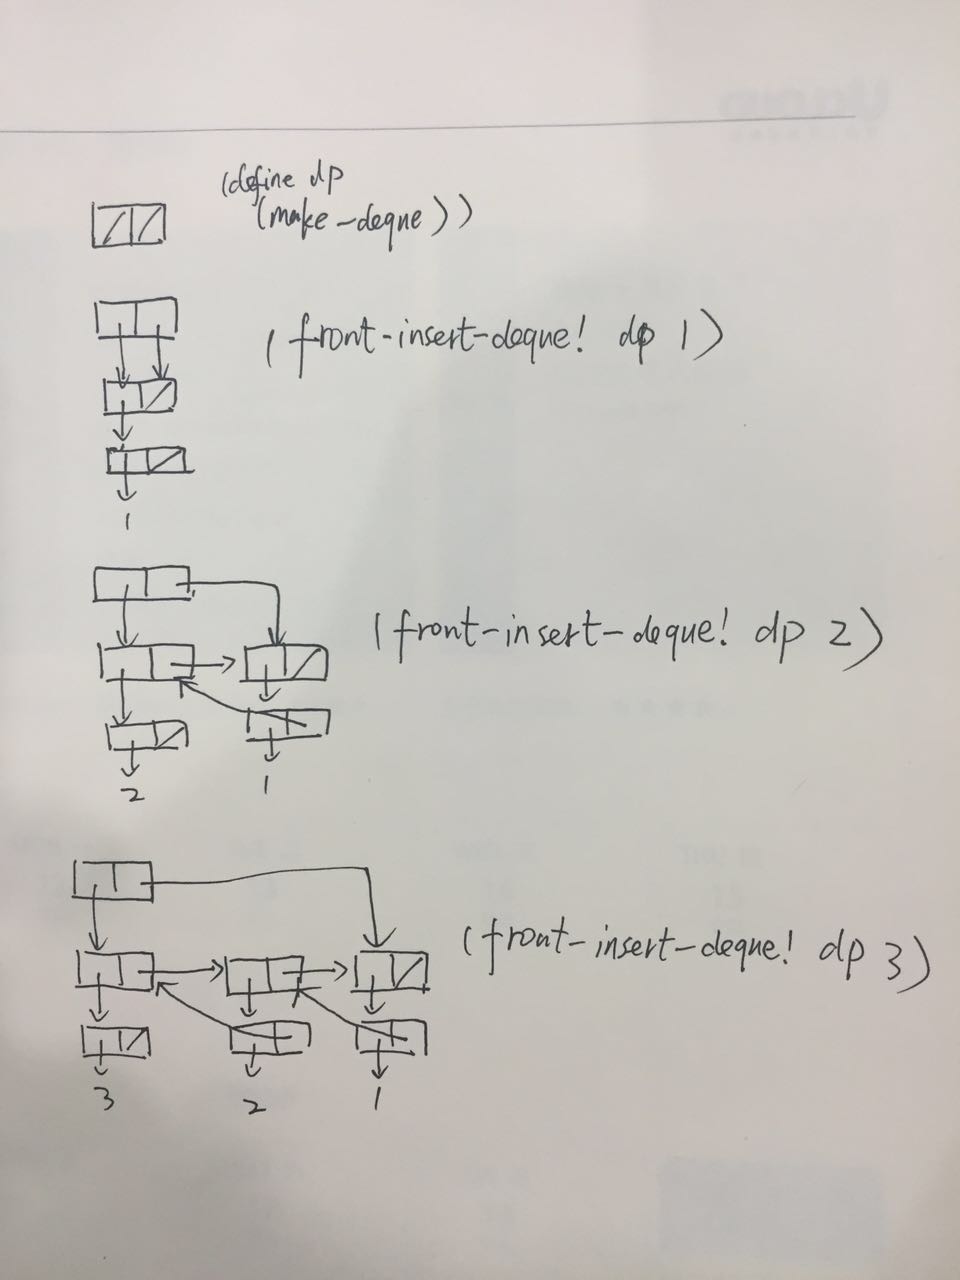 (define dp
(make-deque))
(front-insert-deque! dp 1)
1
(front-insert-deque! dp 2)
2 1
(front-insert-deque! dp 3)
3 2 1